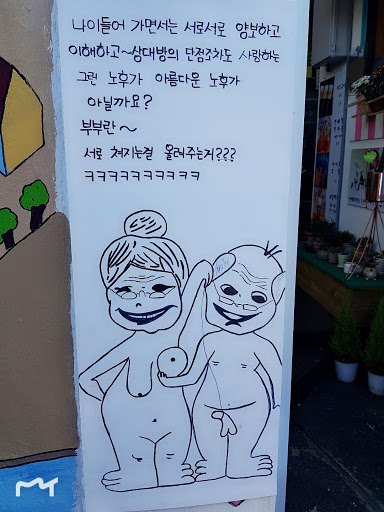 나이들어 가면서는 서로서로 양보하고
이해하고~상대방의 단점조차도 사랑하는
그런 노후가 아름다운 노후가
아닐까요?
부부란~
서로 쳐지는걸 올려주는거???
ㅋㅋㅋㅋㅋㅋㅋㅋㅋㅋ